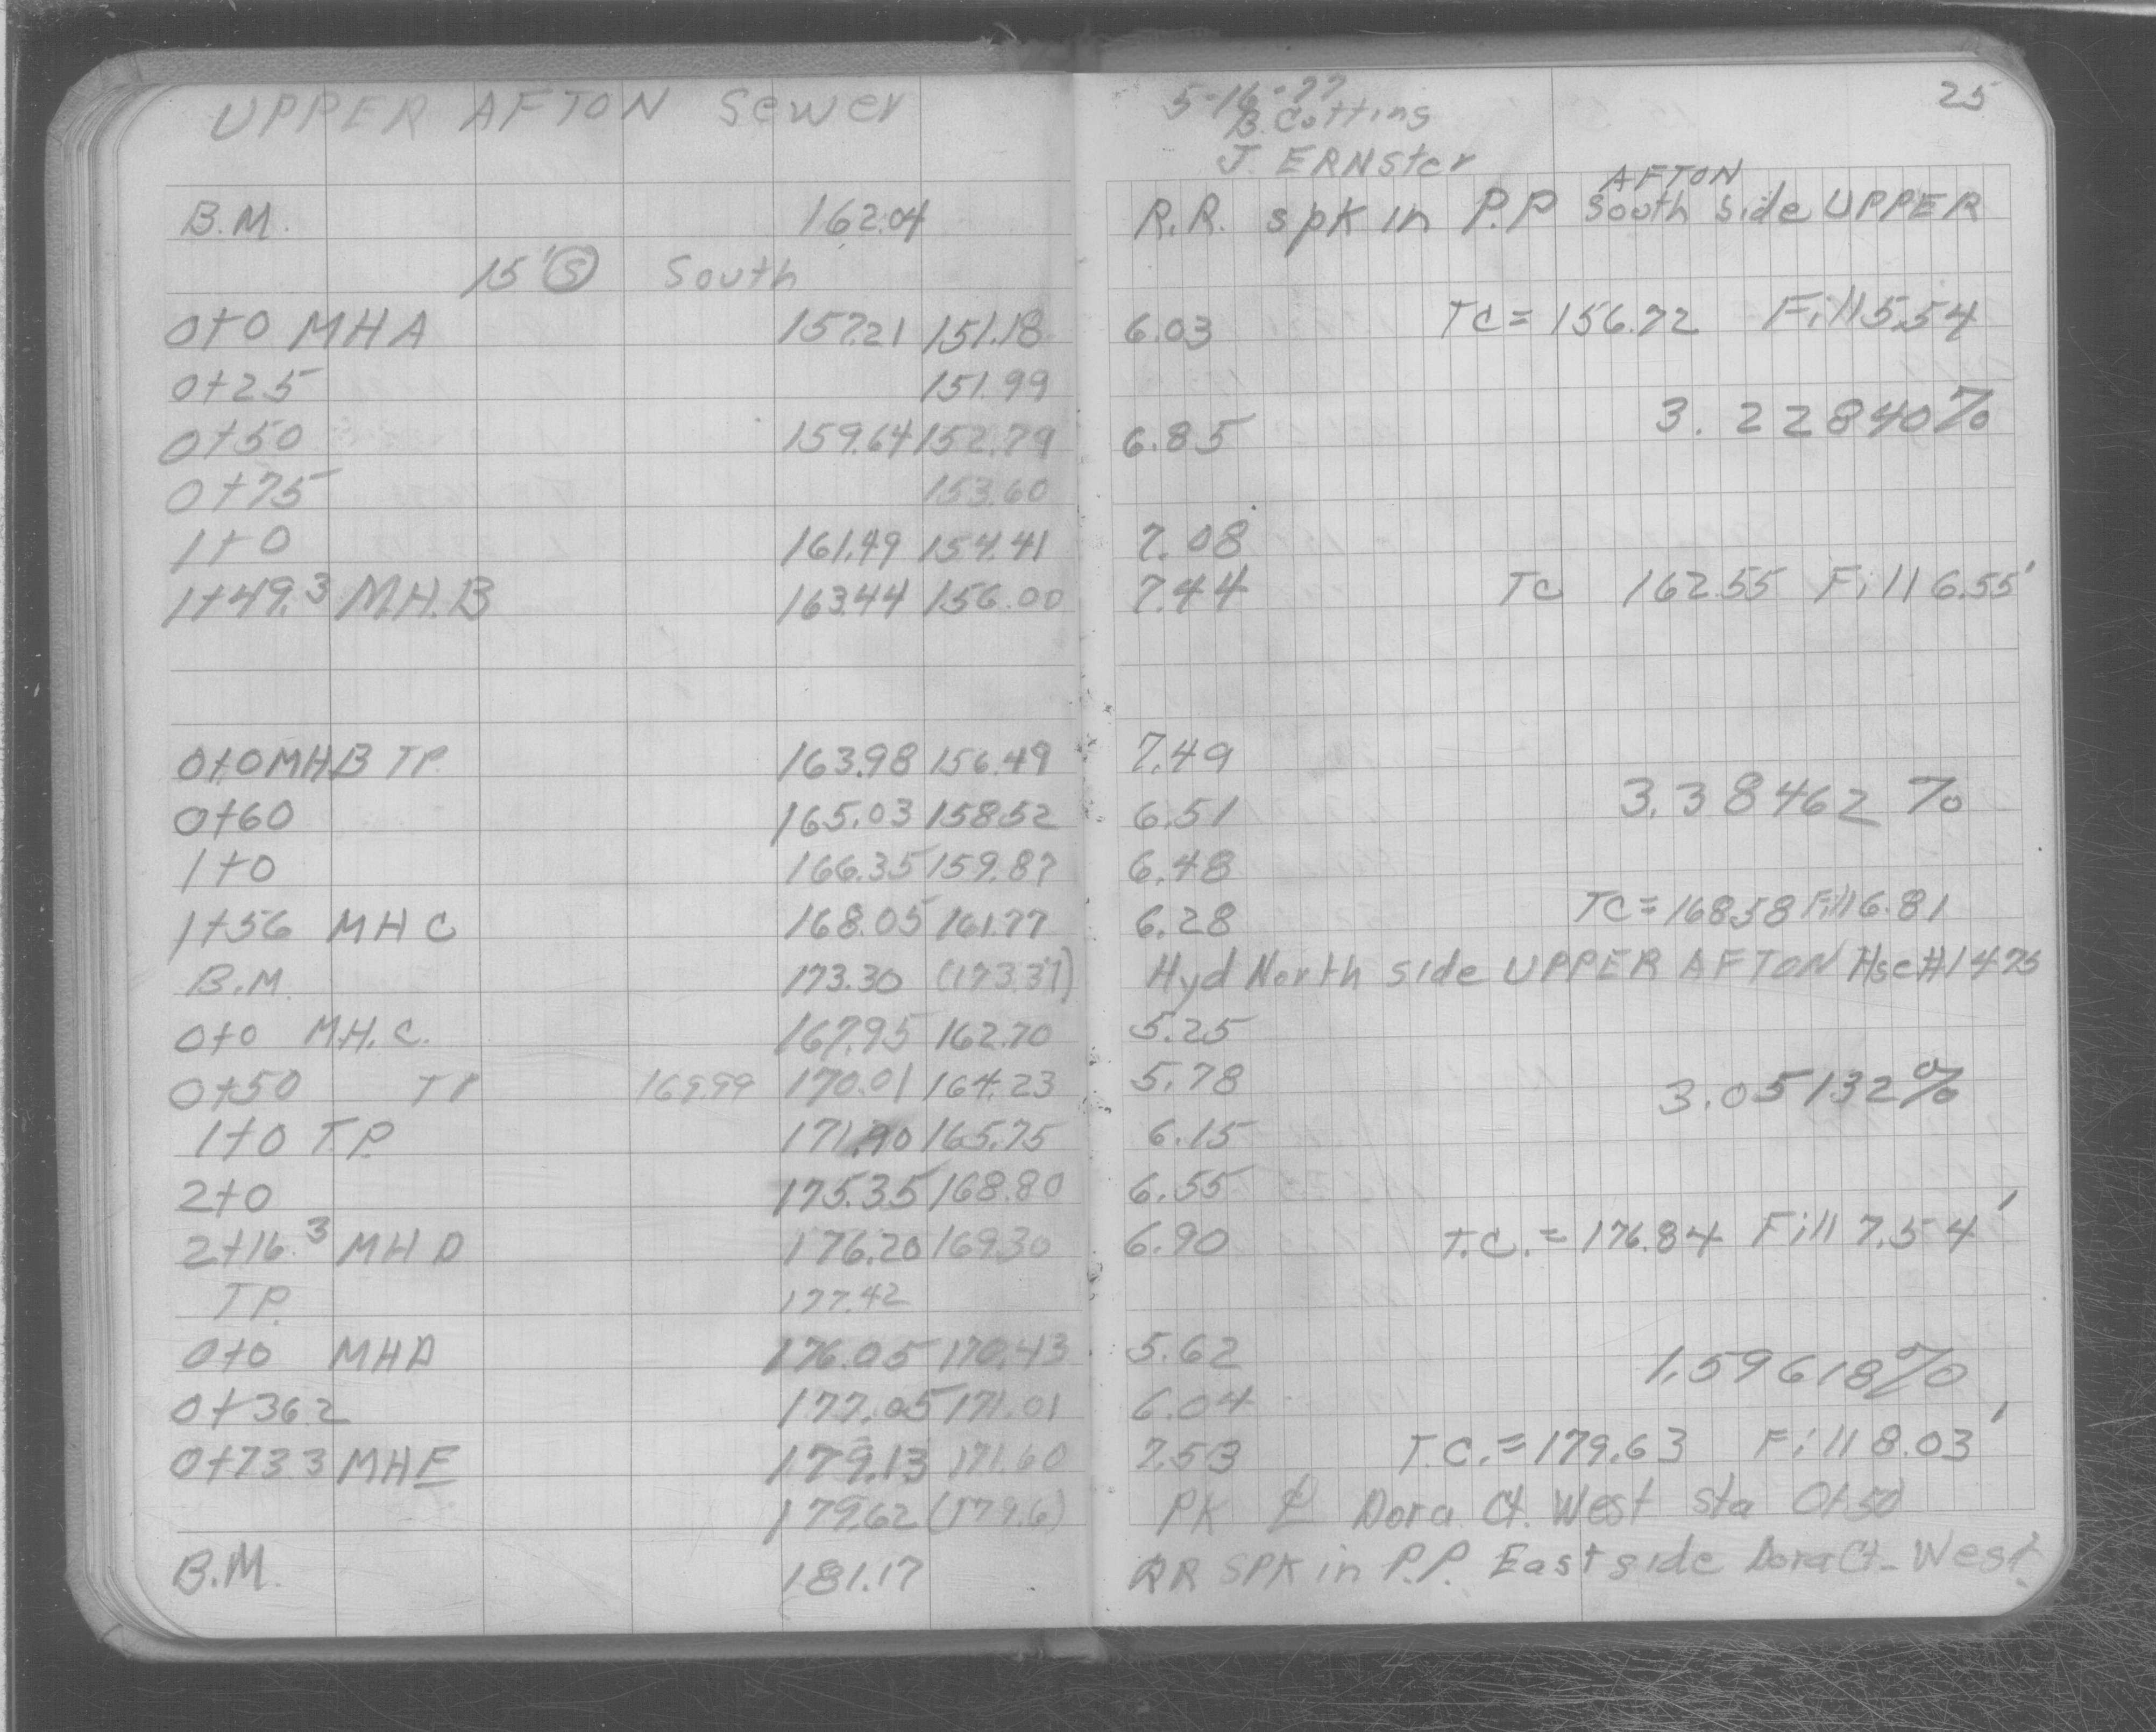 UPPER AFTON Sewer
B.M. 162.04
15' (S) South
0+0 MHA 157.21 151.18
0+25 151.99
0+50 159.64 152.79
0+75 153.60
1+0 161.49 154.41
1+49.3 MH.B 163.44 156.00
0+0 MHB TP. 163.98 156.49
0+60 165.03 158.52
1+0 166.35 159.87
1+56 MHC 168.05 161.77
B.M. 173.30 (173.37)
0+0 M.H.C. 167.95 162.70
0+50 TP 169.99 170.01 164.23
1+0 T.P. 171.90 165.75
2+0 175.35 168.80
2+16.3 MHD 176.20 169.30
TP. 177.42
0+0 MHD 176.05 170.43
0+362 177.05 171.01
0+733 MHE 179.13 171.60
179.62 (179.6)
B.M. 181.17
5-16-77 25
B. Cotting
J. ERNster
AFTON
R.R. spk in P.P South side UPPER
6.03 TC = 156.72 Fill 5.54
3.22840%
6.85
7.08
7.44 TC 162.55 Fill 6.55'
7.49
3.38462 %
6.51
6.48
6.28 TC = 168.58 Fill 6.81
Hyd North side UPPER AFTON Hse#1475
5.25
5.78 3.05132%
6.15
6.55
6.90 T.C. = 176.84 Fill 7.54'
5.62 1.59618%
6.04
7.53 T.C. = 179.63 Fill 8.03'
PK ℄ Dora Ct. West sta 0+50
RR SPK in P.P. East side Dora Ct. West.